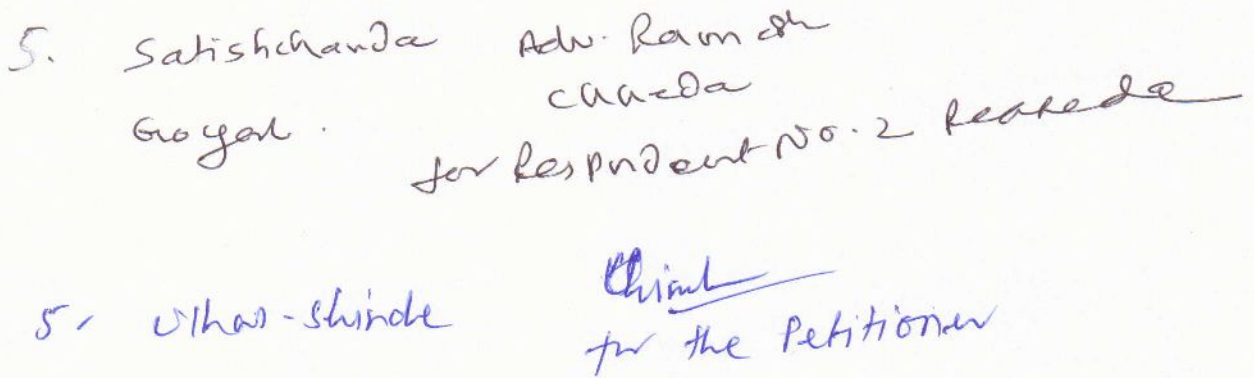 5. Satishchanda Adv. Ramesh
Goyal. Chheda
for Respondent No. 2
5. Ulhas-Shinde
for the Petitioner